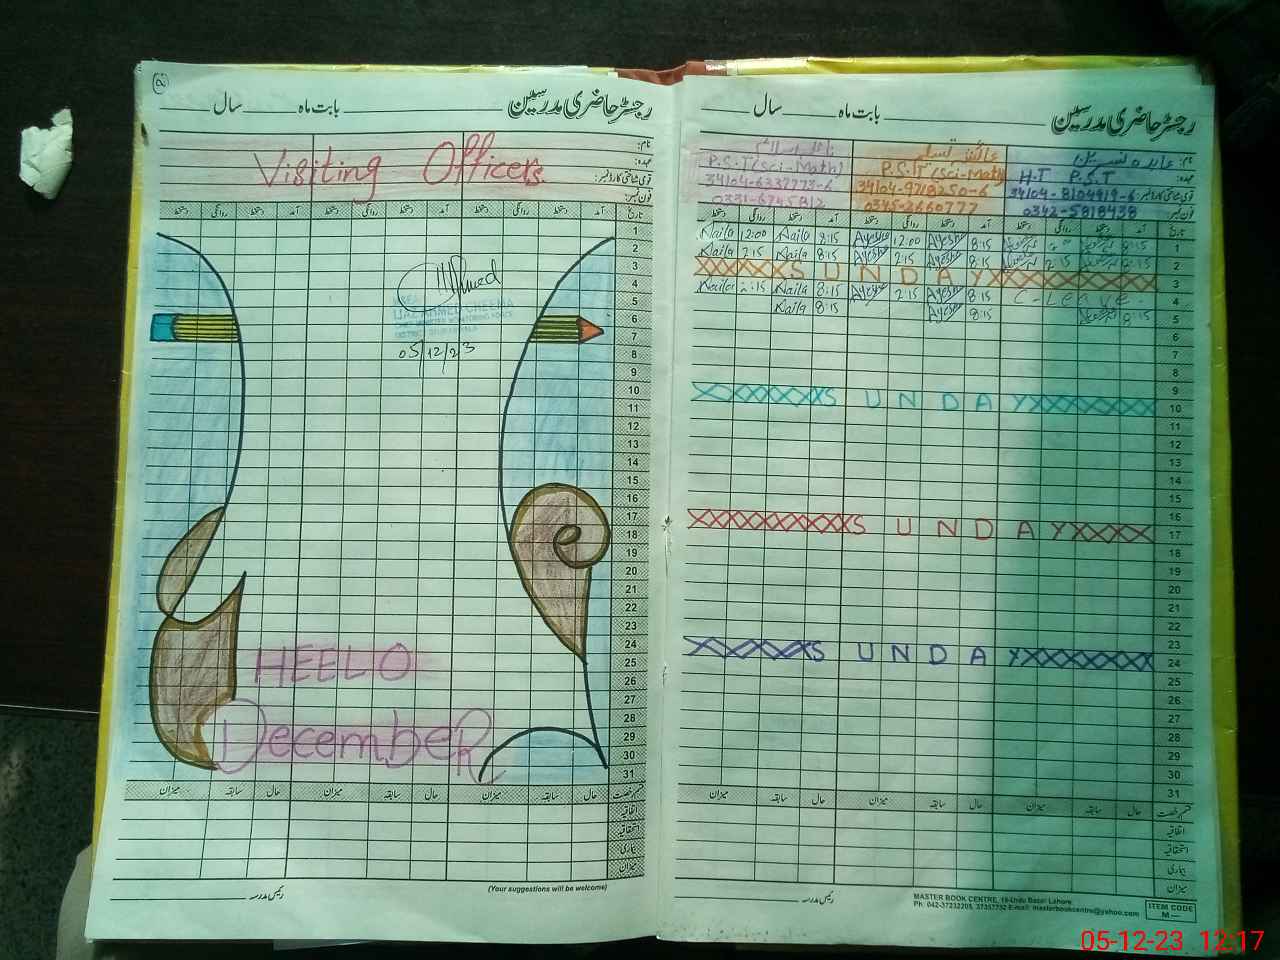 رجسٹر حاضری مدرسین بابت ماہ سال
Visiting Officers
نام:
عہدہ:
قومی شناختی کارڈ نمبر:
فون نمبر:
تاریخ آمد دستخط روانگی دستخط آمد دستخط روانگی دستخط آمد دستخط روانگی دستخط
1
2
3
4
5
6
7
8
9
10
11
12
13
14
15
16
17
18
19
20
21
22
23
24
25
26
27
28
29
30
31
IJAZ AHMED CHEEMA
05/12/23
HEELO
December
قسم رخصت حال سابقہ میزان حال سابقہ میزان حال سابقہ میزان
اتفاقیہ
استحقاقیہ
بیماری
میزان
رئیس مدرسہ
(Your suggestions will be welcome)
رجسٹر حاضری مدرسین بابت ماہ سال
نام:
عہدہ: H.T P.S.T P.S.T (Sci-Math) P.S.T (Sci-Math)
قومی شناختی کارڈ نمبر: 34104-8104919-6 34104-9718250-6 34104-6337773-6
فون نمبر: 0342-5818438 0345-2660777 0331-6745812
تاریخ آمد دستخط روانگی دستخط آمد دستخط روانگی دستخط آمد دستخط روانگی دستخط
1 8:15 8:15 Ayesha 12:00 Ayesha 8:15 Naila 12:00 Naila
2 8:15 2:15 8:15 Ayesha 2:15 Ayesha 8:15 Naila 2:15 Naila
3 SUNDAY
4 C-Leave 8:15 Ayesha 2:15 Ayesha 8:15 Naila 2:15 Naila
5 8:15 8:15 Ayesha 8:15 Naila
6
7
8
9
10 SUNDAY
11
12
13
14
15
16
17 SUNDAY
18
19
20
21
22
23
24 SUNDAY
25
26
27
28
29
30
31
قسم رخصت حال سابقہ میزان حال سابقہ میزان حال سابقہ میزان
اتفاقیہ
استحقاقیہ
بیماری
میزان
رئیس مدرسہ
MASTER BOOK CENTRE, 19-Urdu Bazar Lahore.
Ph: 042-37232205, 37357752 E-mail: masterbookcentre@yahoo.com
ITEM CODE
M—
05-12-23 12:17